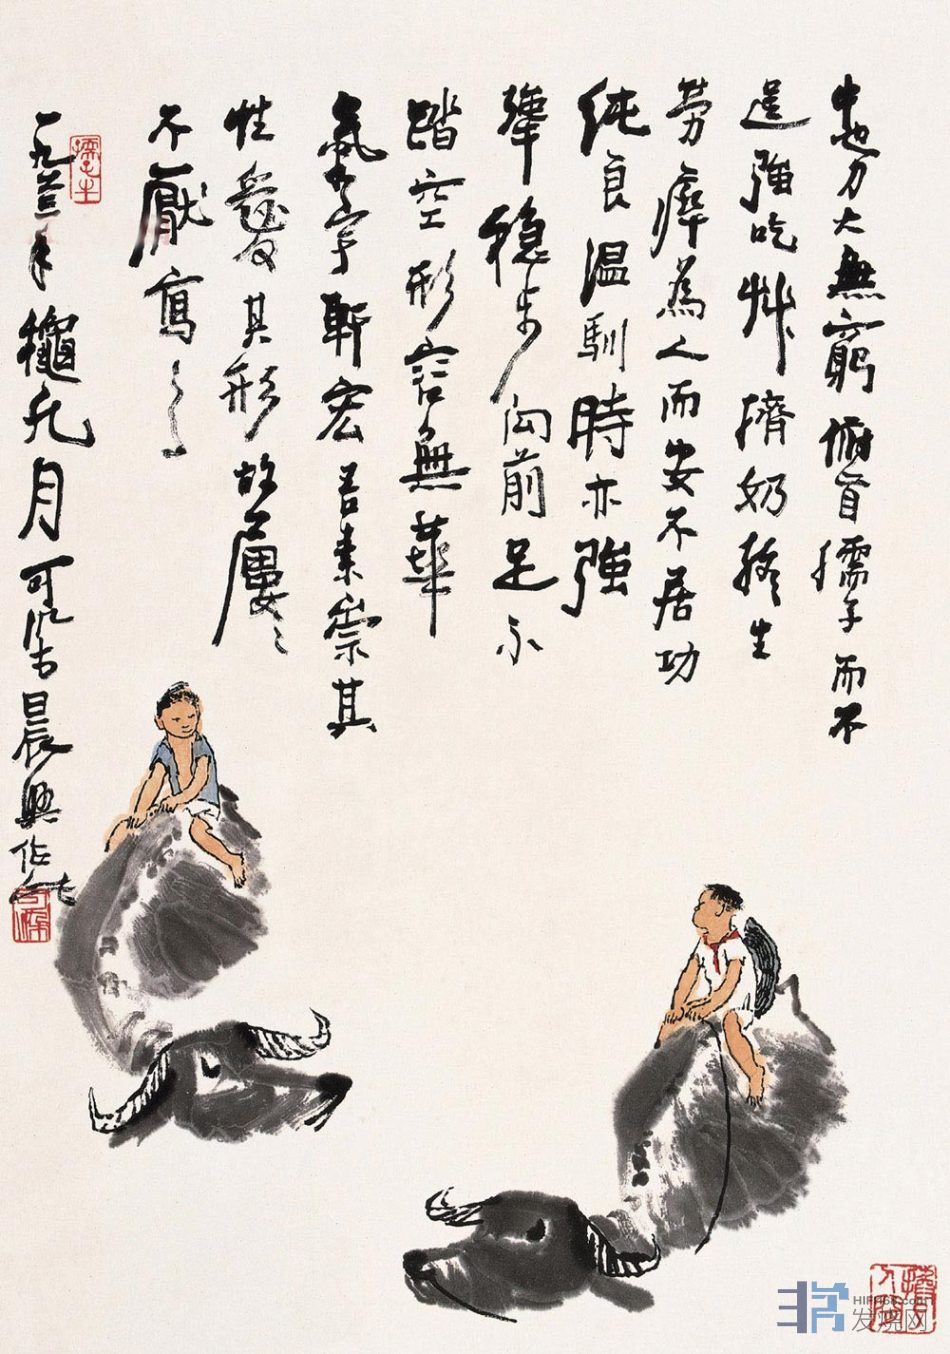 牛也力大無窮俯首孺子而不
逞強吃艸擠奶終生
勞瘁為人而安不居功
純良溫馴時亦強
犟穩步向前足不
踏空形容無華
氣宇軒宏吾素崇其
性愛其形故屢〻
不厭寫之
一九六三年龝九月可染晨興作
孺子牛
可染
发烧网